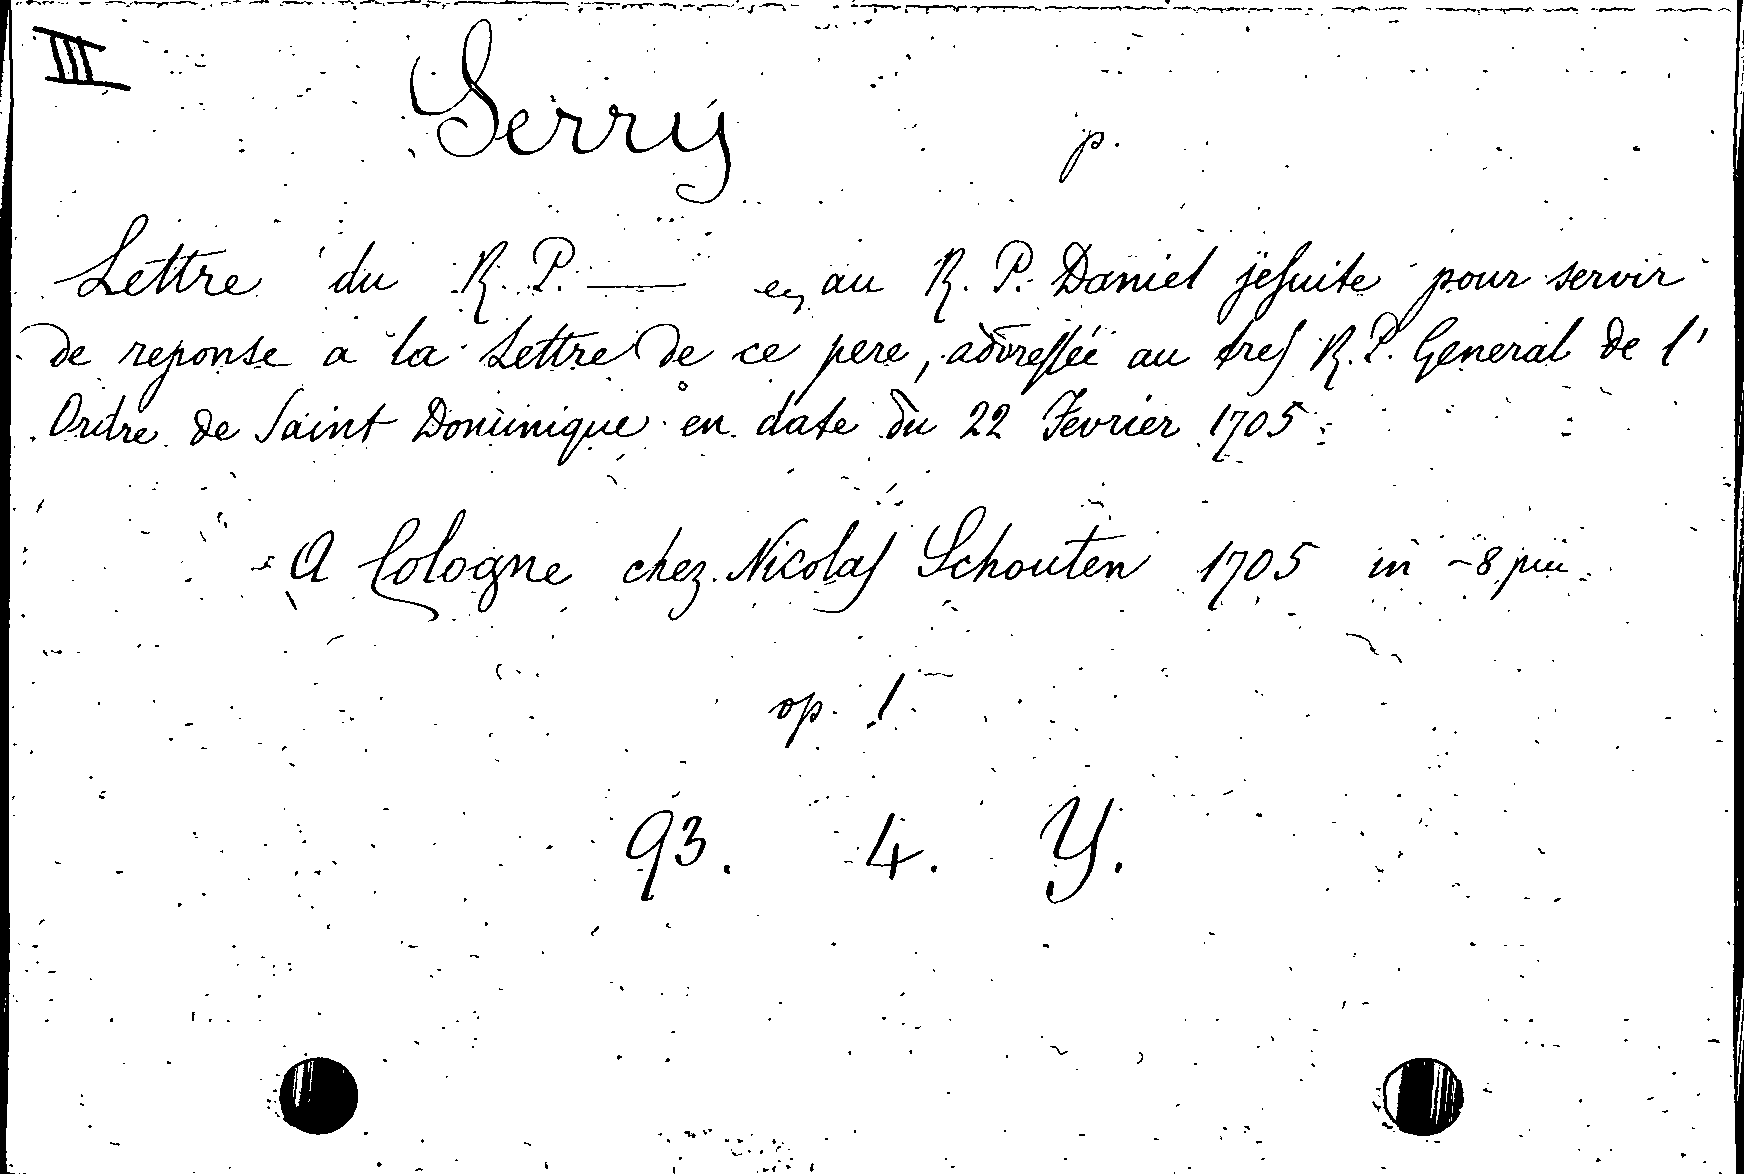 III
Serry p.
Lettre du R. P. — au R. P. Daniel jesuite pour servir
de reponse a la Lettre de ce pere, addressée au tres R. P. General de l'
Ordre de Saint Dominique en date du 22 Fevrier 1705
A Cologne chez Nicolas Schouten 1705 in -8
op. 1
93. 4. Y.